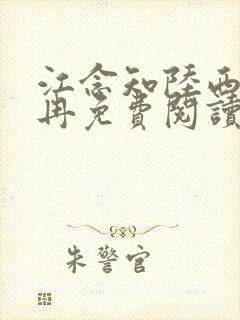 江念知陸西
再免費閱讀
朱警官